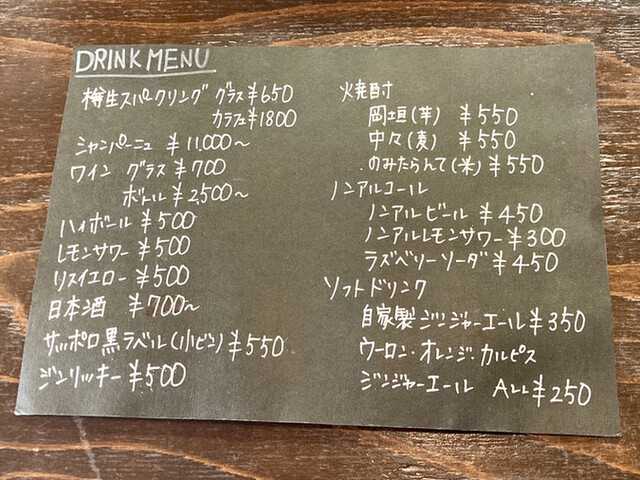 DRINK MENU
樽生スパークリング グラス¥650
カラフェ¥1800
シャンパーニュ ¥11,000~
ワイン グラス ¥700
ボトル ¥2,500~
ハイボール ¥500
レモンサワー ¥500
リスイエロー ¥500
日本酒 ¥700~
サッポロ黒ラベル(小ビン)¥550
ジンリッキー ¥500
焼酎
岡垣(芋) ¥550
中々(麦) ¥550
のみたらんて(米) ¥550
ノンアルコール
ノンアルビール ¥450
ノンアルレモンサワー ¥300
ラズベリーソーダ ¥450
ソフトドリンク
自家製ジンジャーエール¥350
ウーロン・オレンジ・カルピス
ジンジャーエール ALL¥250